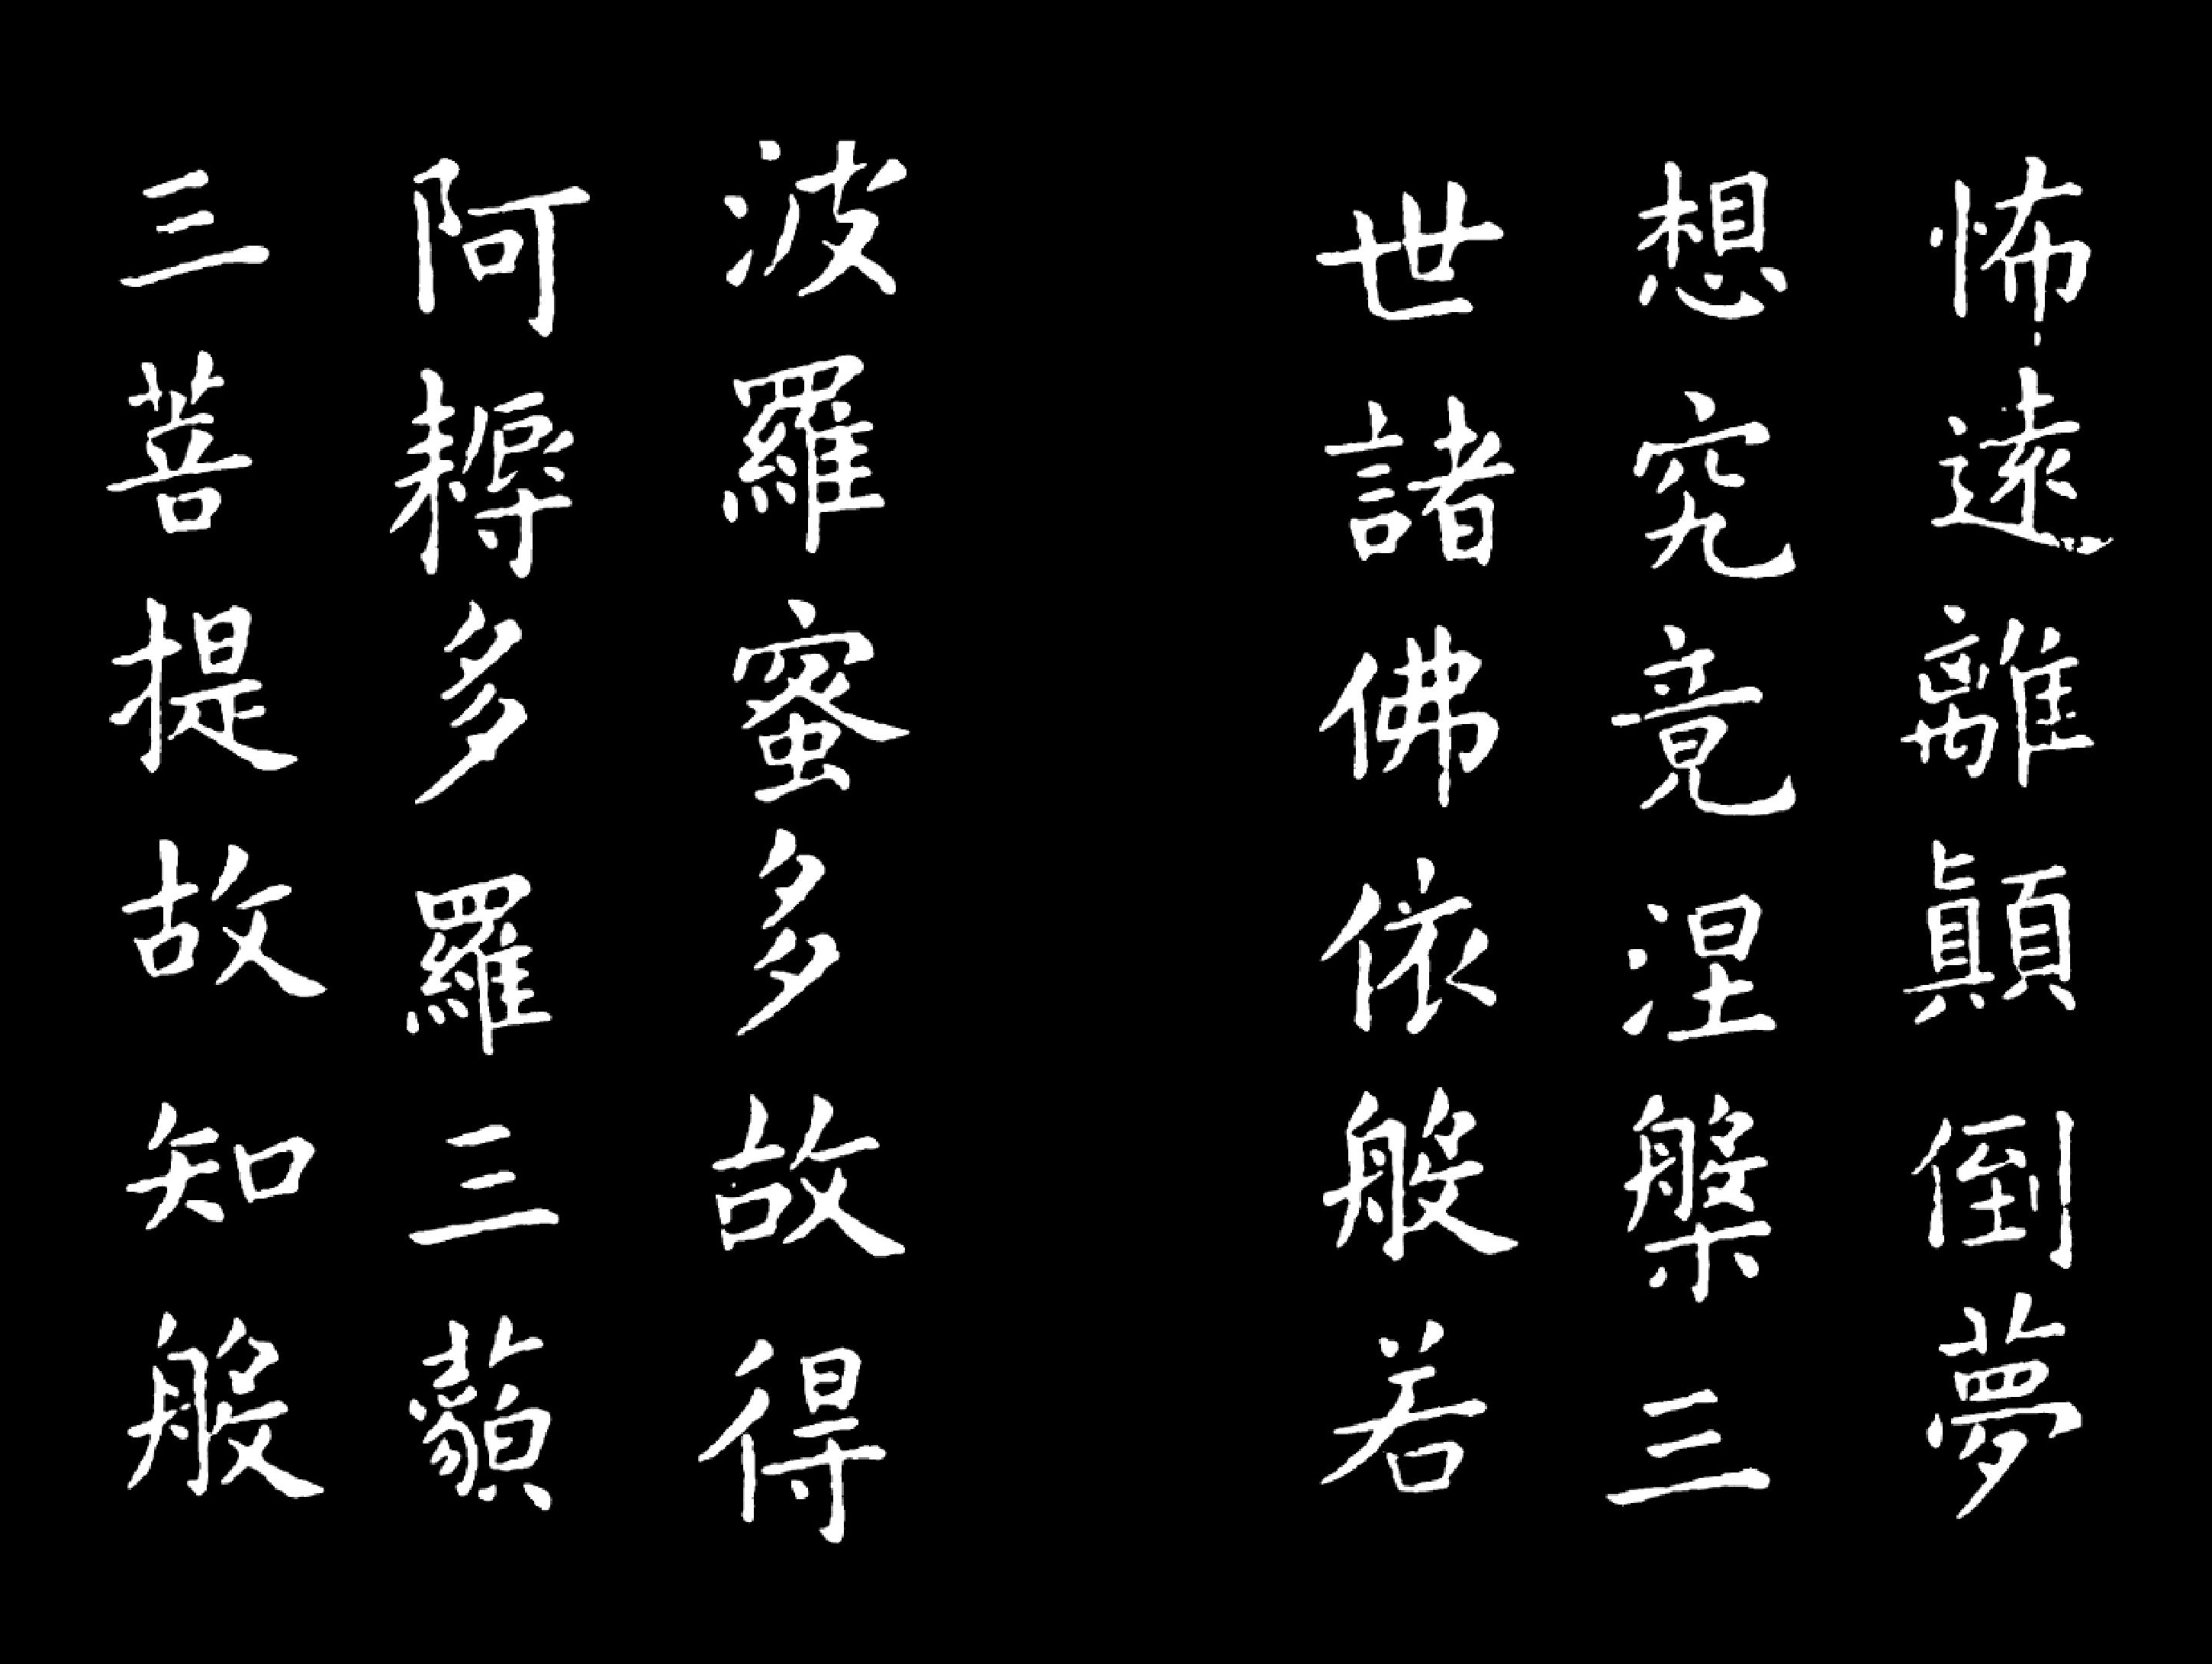 怖遠離顛倒夢
想究竟涅槃三
世諸佛依般若
波羅蜜多故得
阿耨多羅三藐
三菩提故知般